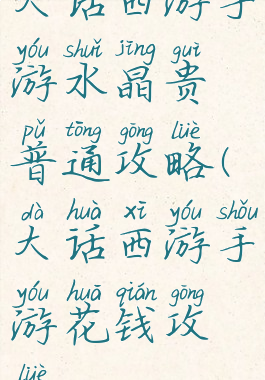 大话西游手
yóu shuǐ jīng guì
游水晶贵
pǔ tōng gōng lüè
普通攻略(
dà huà xī yóu shǒu
大话西游手
yóu huā qián gōng
游花钱攻
lüè